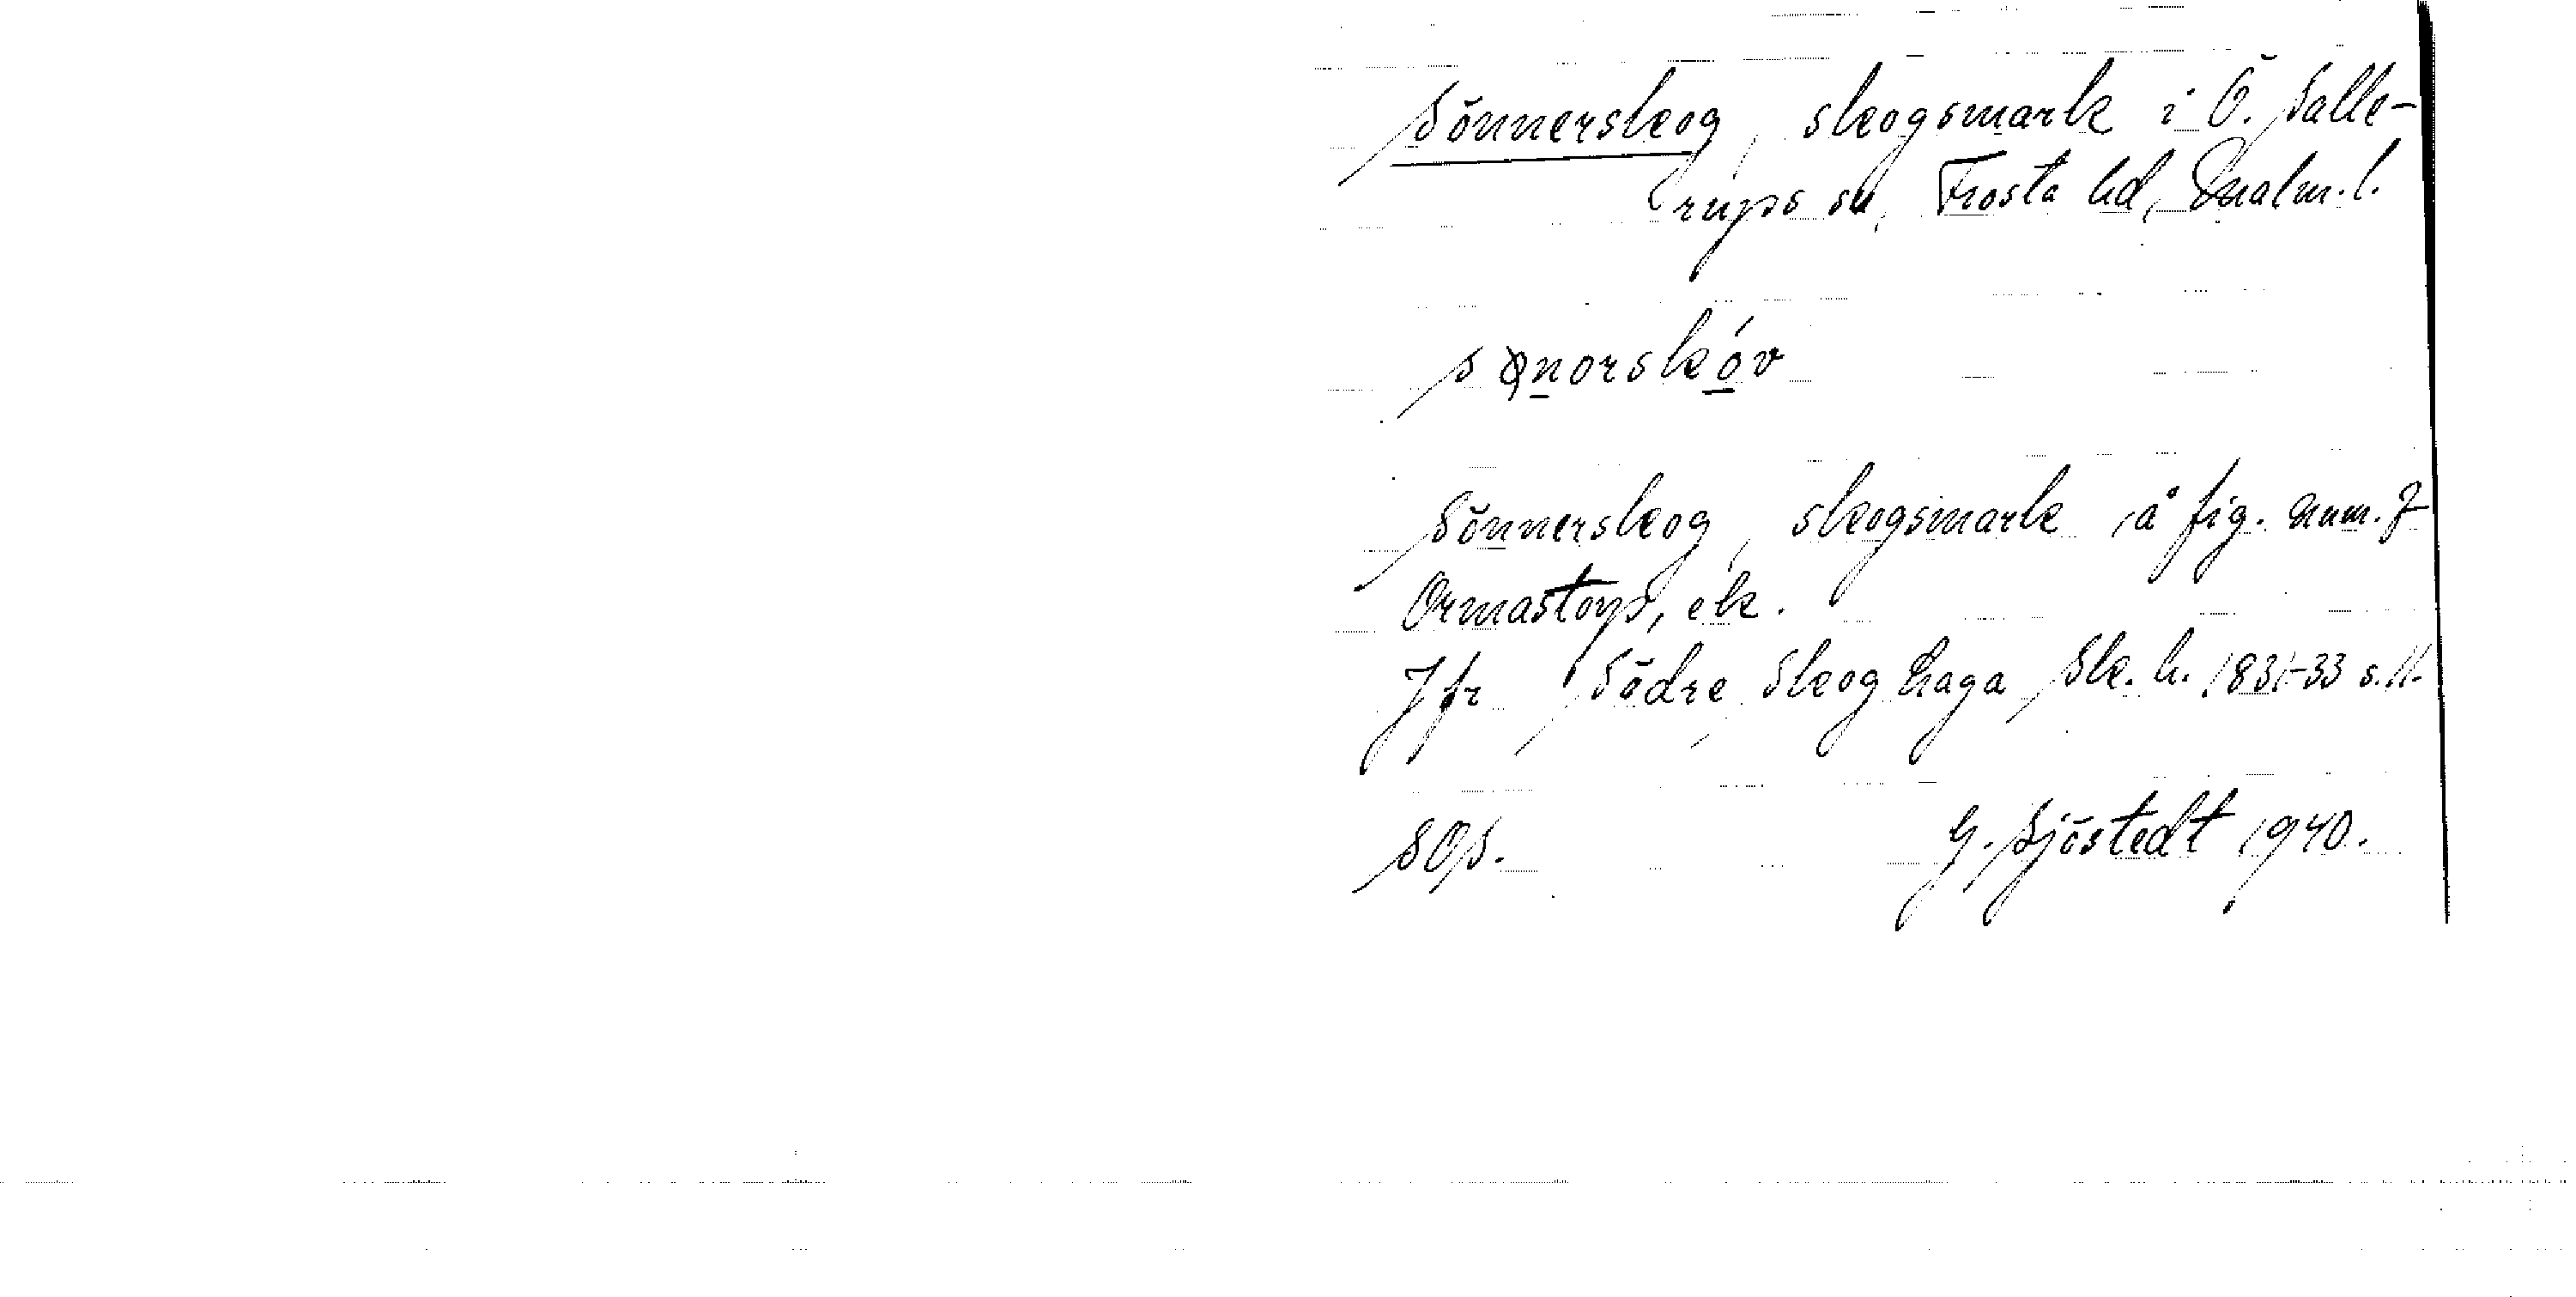 Sönnerskog, skogsmark i Ö. Salle-
rups sn, Frosta hd, Malm. l.
sønorskóv
Sönnerskog, skogsmark å fig. num. 7
Ormastorp, ek.
Jfr Södre Skog haga Sk. h. 1831-33 s. 11.
SOS. G. Sjöstedt 1940.